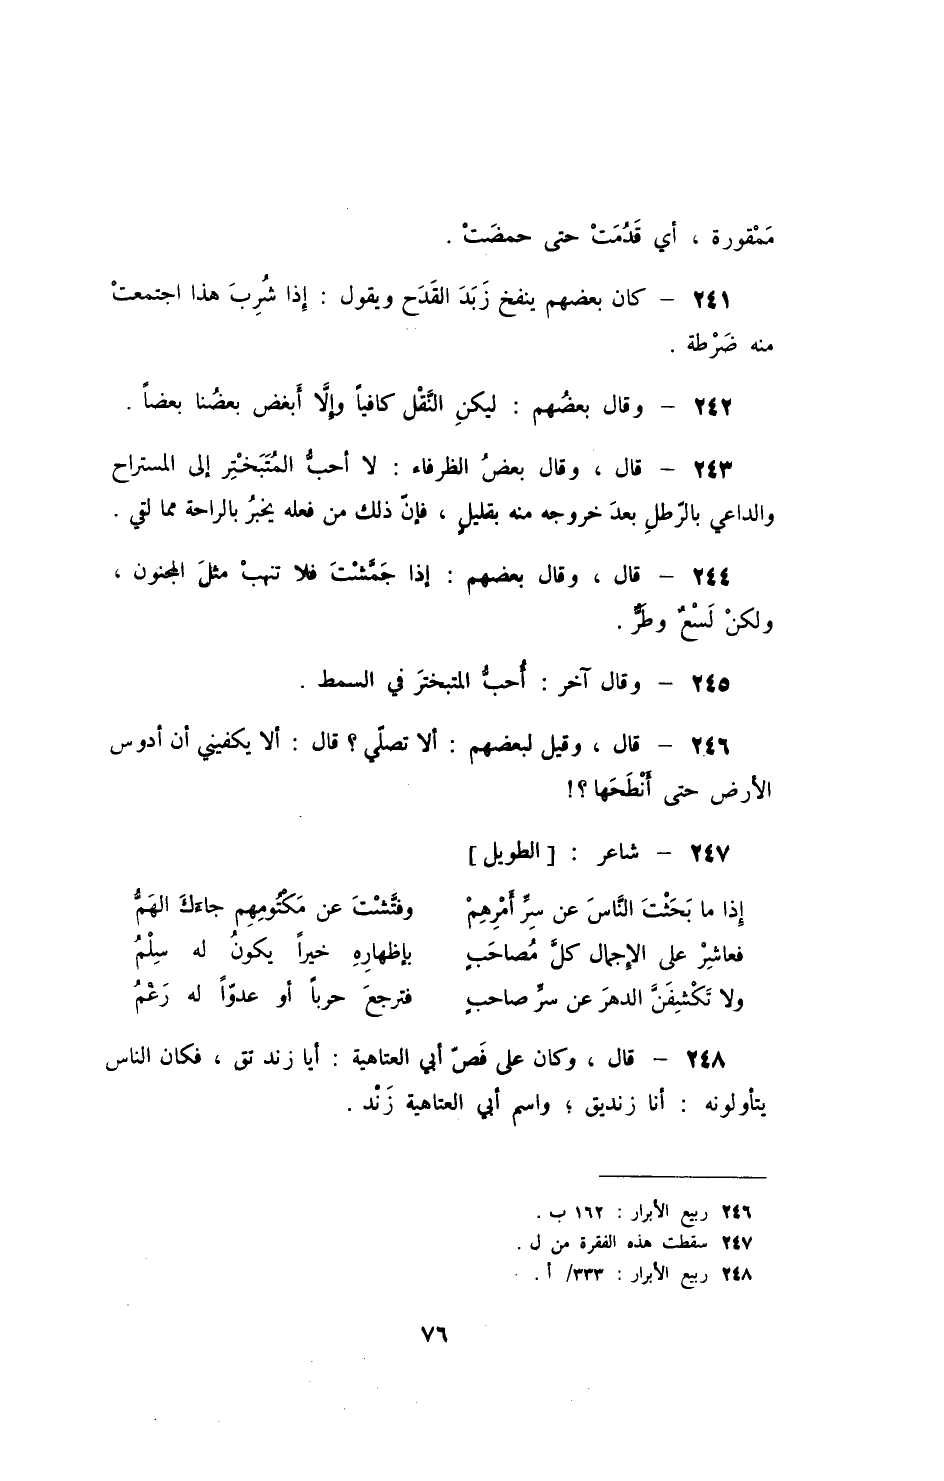 مَمْقورة ، أي قَدُمَتْ حتى حمضَتْ .
٢٤١ – كان بعضهم ينفخ زَبَدَ القَدَح ويقول : إِذا شُرِبَ هذا اجتمعتْ
منه ضَرْطة .
٢٤٢ – وقال بعضُهم : ليكنِ النَّقْل كافياً وإِلَّا أَبغض بعضُنا بعضاً .
٢٤٣ – قال ، وقال بعضُ الظرفاء : لا أحبُّ المُتَبَخْتِر إلى المستراح
والداعي بالرّطلِ بعدَ خروجه منه بقليلٍ ، فإنّ ذلك من فعله يخبرُ بالراحة مما لقي .
٢٤٤ – قال ، وقال بعضهم : إذا جَمَّشْتَ فلا تنهبْ مثلَ المجنون ،
ولكنْ لَسْعٌ وطَرٌّ .
٢٤٥ – وقال آخر : أُحبُّ المتبخترَ في السمط .
٢٤٦ – قال ، وقيل لبعضهم : ألا تصلّي ؟ قال : ألا يكفيني أن أدوس
الأرض حتى أَنْطَحَها ؟!
٢٤٧ – شاعر : [ الطويل ]
إذا ما بَحَثْتَ النَّاسَ عن سِرِّ أَمْرِهِمْ وفتَّشْتَ عن مَكْتُومِهِم جاءكَ الهَمُّ
فعاشِرْ على الإجمال كلَّ مُصاحَبٍ بإظهارِهِ خيراً يكونُ له سِلْمُ
ولا تَكْشِفَنَّ الدهرَ عن سرِّ صاحبٍ فترجعَ حرباً أو عدوّاً له رَغْمُ
٢٤٨ – قال ، وكان على فَصّ أبي العتاهية : أيا زند تق ، فكان الناس
يتأولونه : أنا زنديق ؛ واسم أبي العتاهية زَنْد .
٢٤٦ ربيع الأبرار : ١٦٢ ب .
٢٤٧ سقطت هذه الفقرة من ل .
٢٤٨ ربيع الأبرار : ٣٣٣/ أ .
٧٦